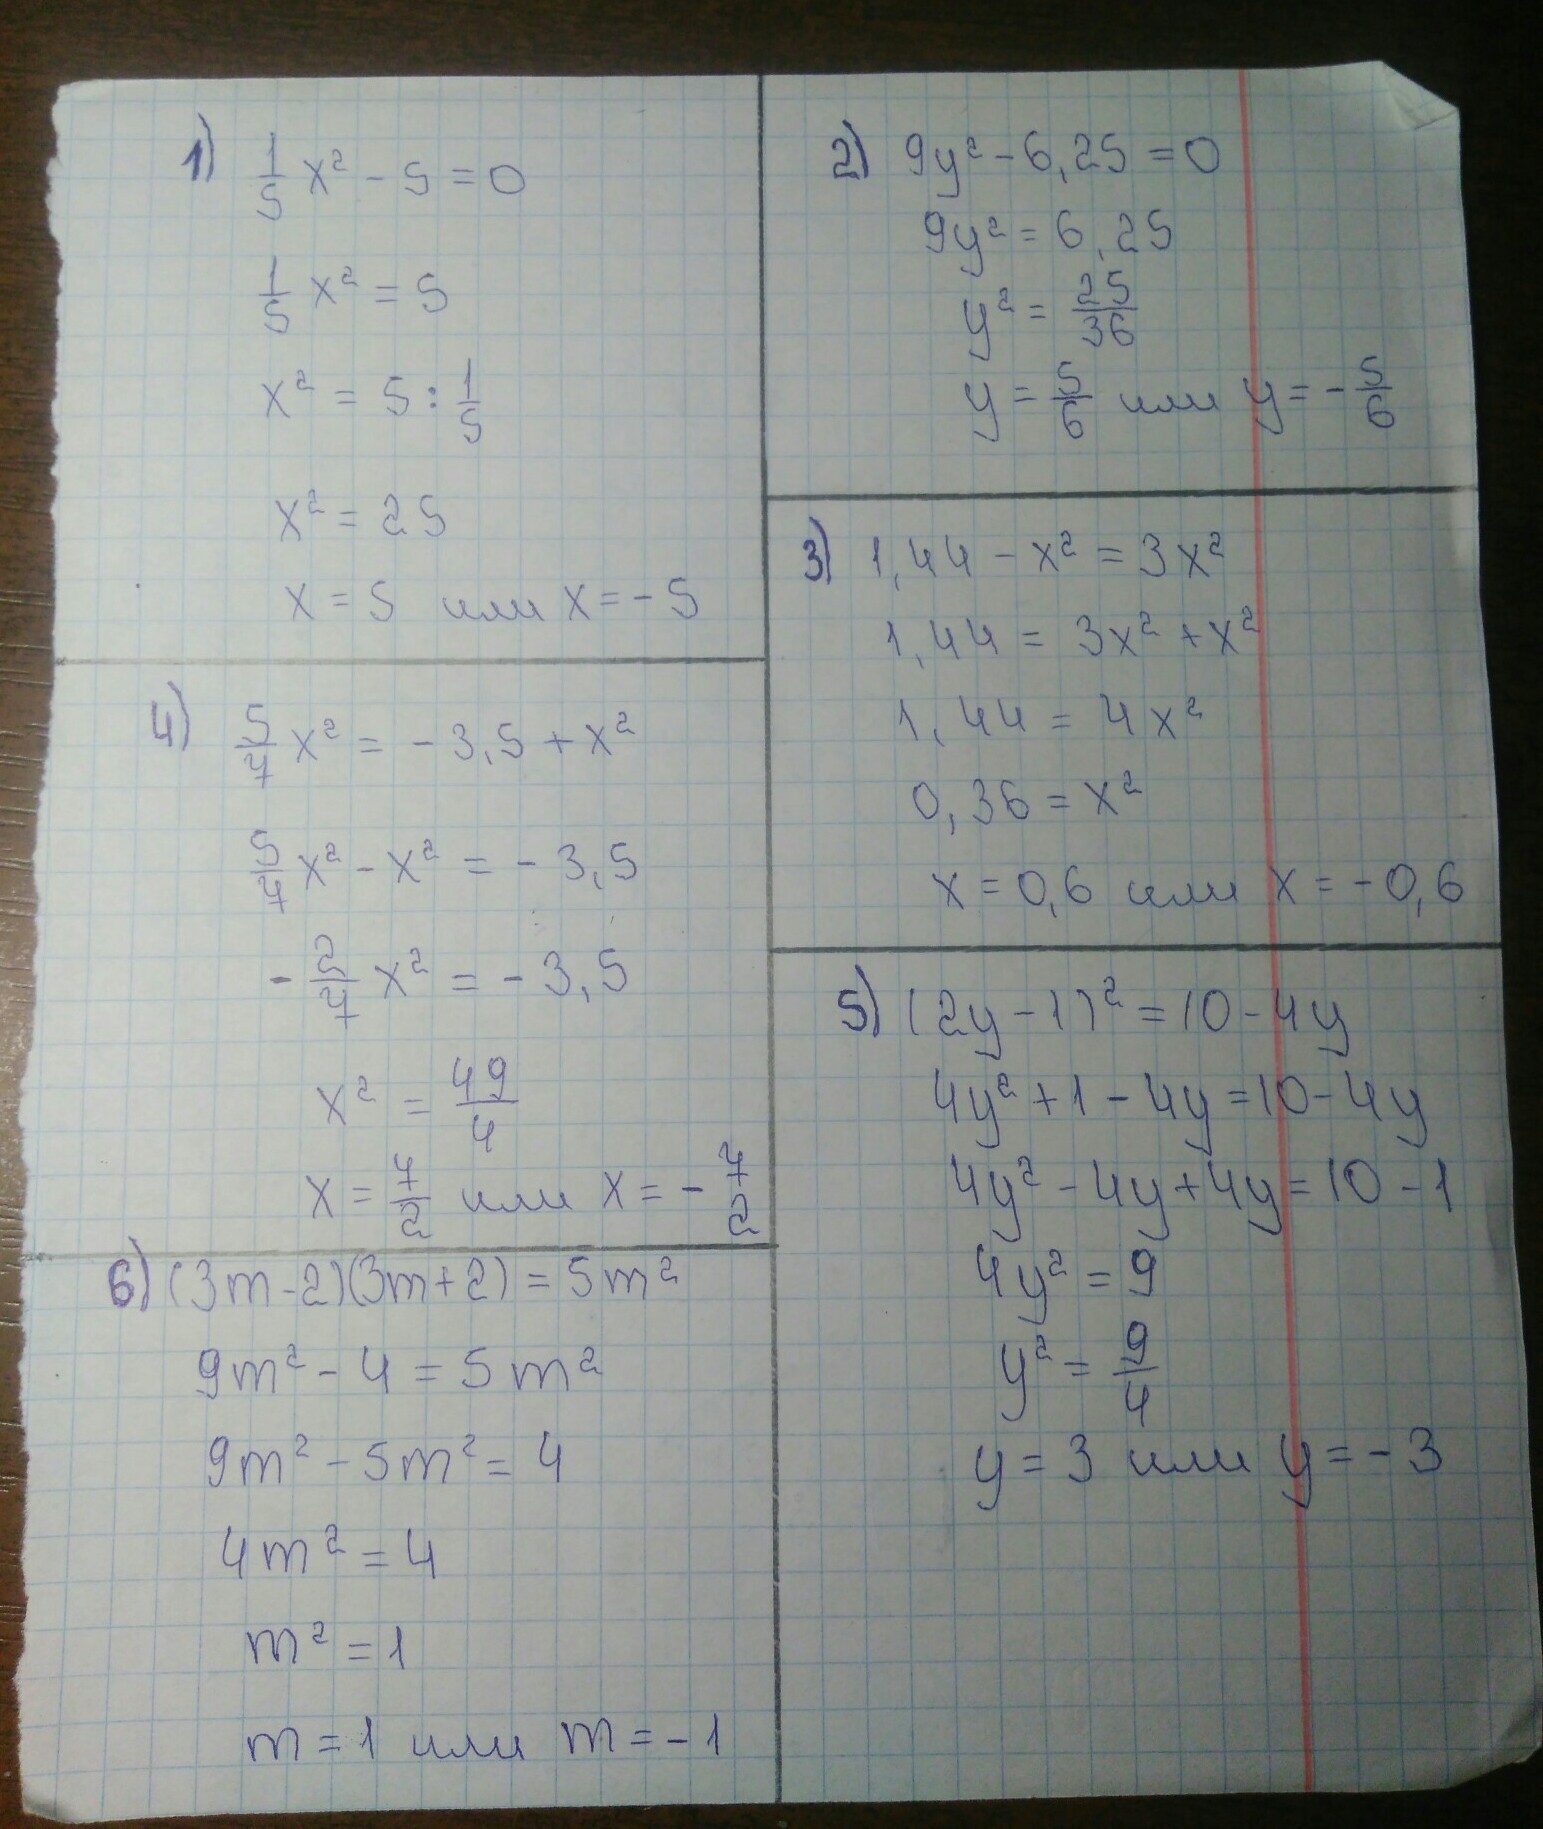 1) 1/5 x² - 5 = 0
1/5 x² = 5
x² = 5 : 1/5
x² = 25
x = 5 или x = - 5
2) 9y² - 6,25 = 0
9y² = 6,25
y² = 25/36
y = 5/6 или y = - 5/6
3) 1,44 - x² = 3x²
1,44 = 3x² + x²
1,44 = 4x²
0,36 = x²
x = 0,6 или x = - 0,6
4) 5/7 x² = - 3,5 + x²
5/7 x² - x² = - 3,5
- 2/7 x² = - 3,5
x² = 49/4
x = 7/2 или x = - 7/2
5) (2y - 1)² = 10 - 4y
4y² + 1 - 4y = 10 - 4y
4y² - 4y + 4y = 10 - 1
4y² = 9
y² = 9/4
y = 3 или y = - 3
6) (3m - 2)(3m + 2) = 5m²
9m² - 4 = 5m²
9m² - 5m² = 4
4m² = 4
m² = 1
m = 1 или m = - 1